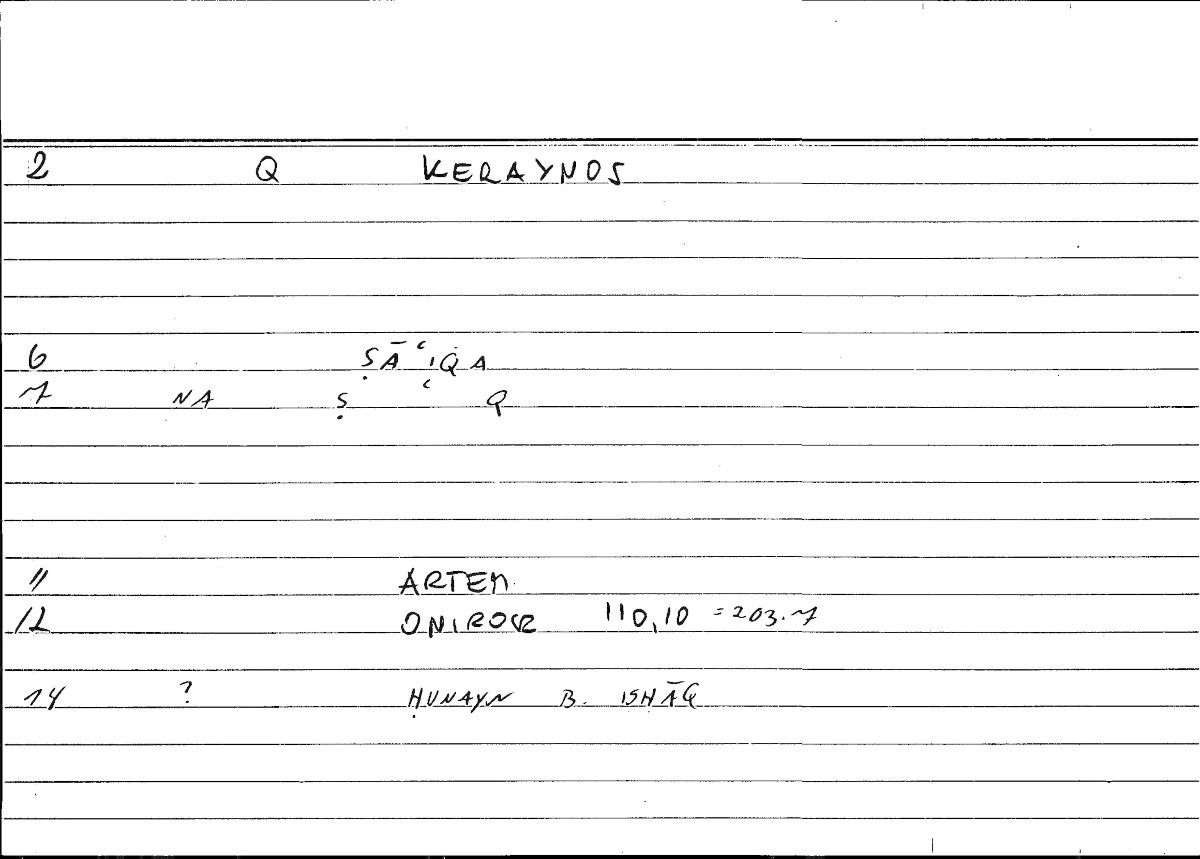 2 Q KERAYNOS
6 ṢĀʿIQA
7 NA Ṣ ʿ Q
11 ARTEM.
12 ONIROCR 110,10 = 203.7
14 ? ḤUNAYN B. ISHĀQ